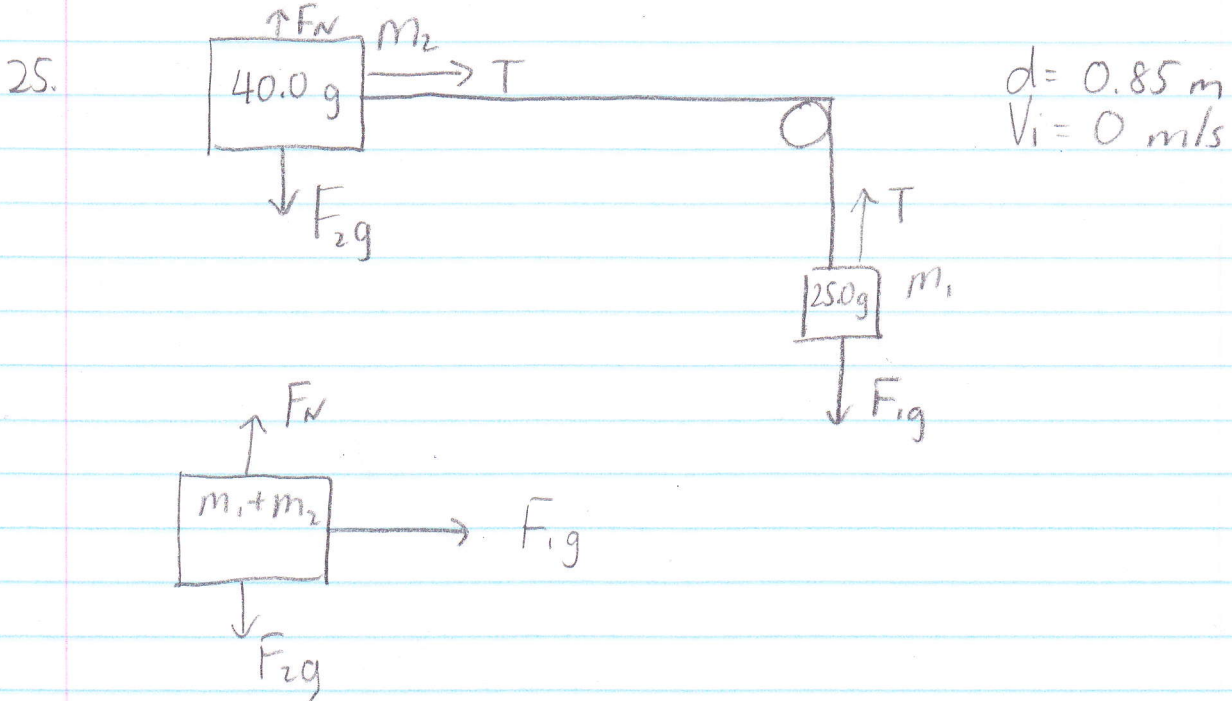 25.
F_N
m₂
40.0 g
T
d = 0.85 m
Vᵢ = 0 m/s
F₂g
T
25.0g
m₁
F₁g
F_N
m₁+m₂
F₁g
F₂g